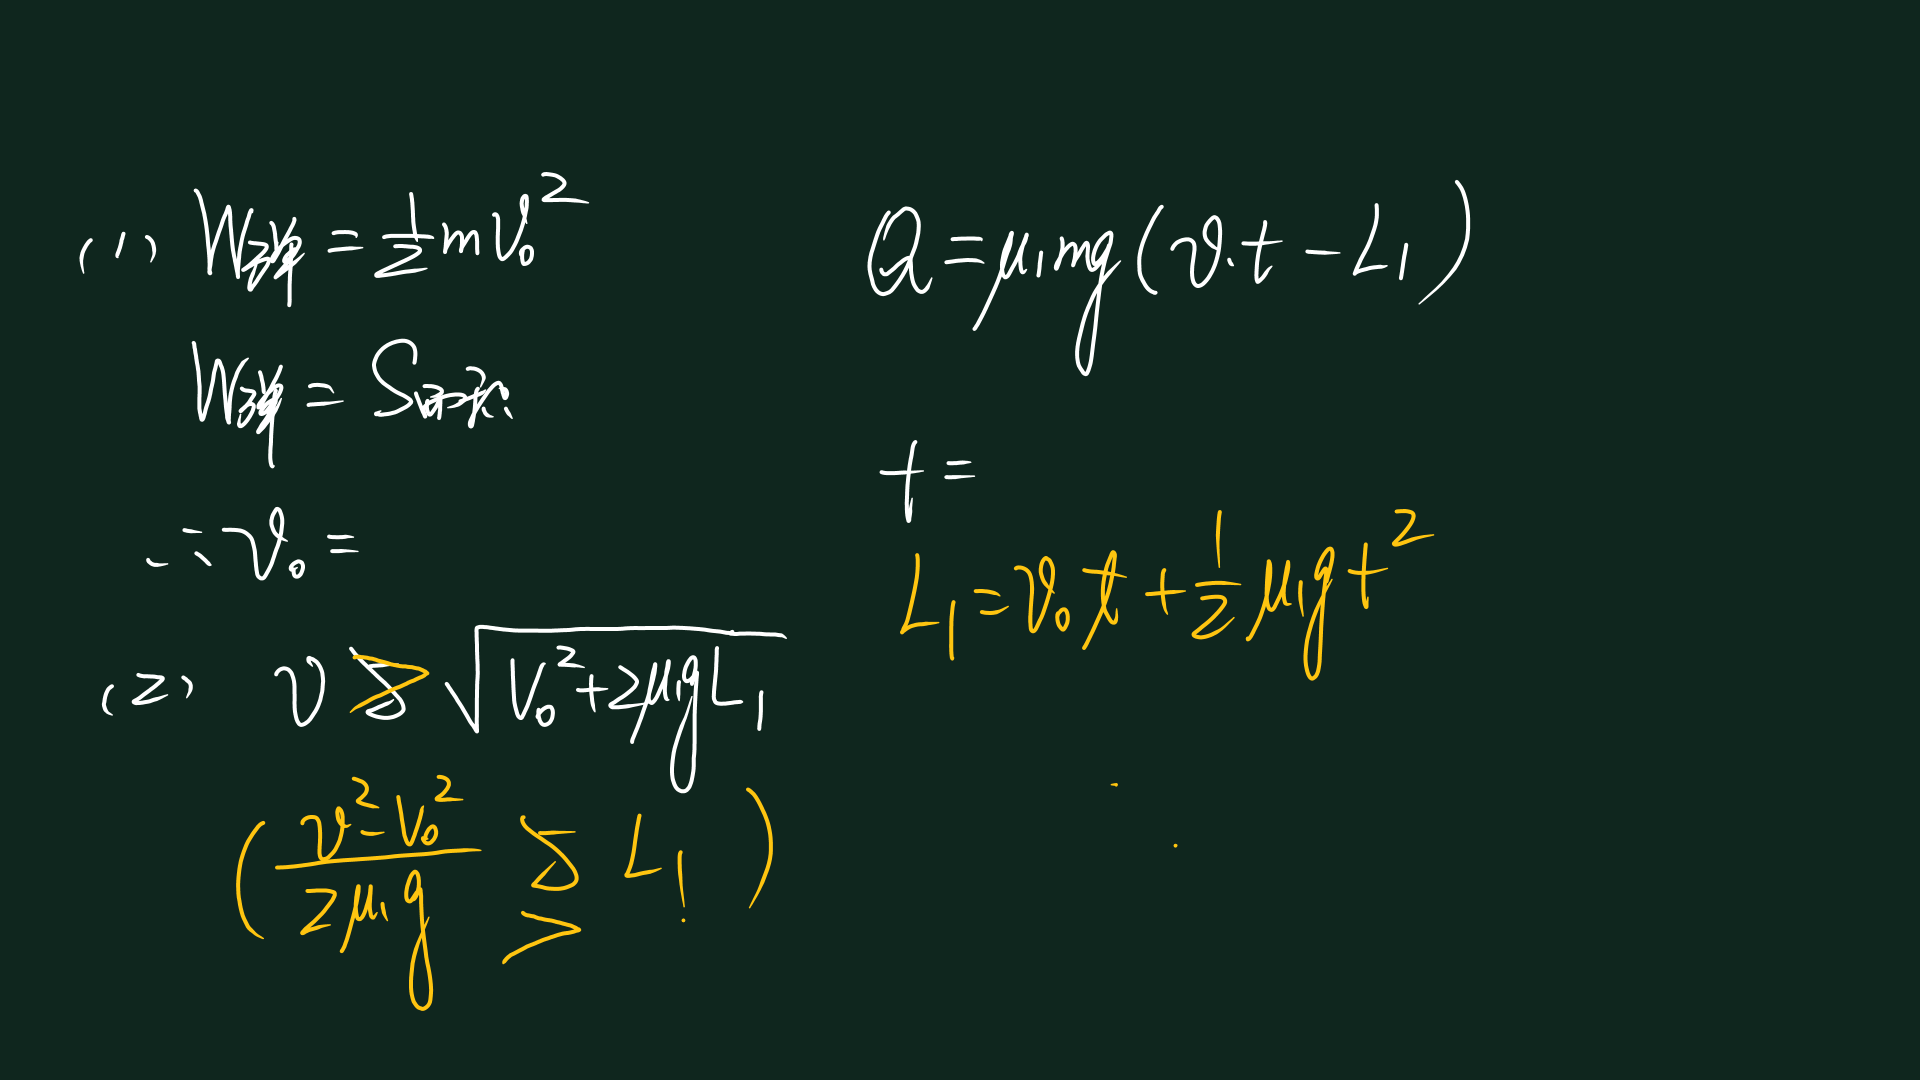 (1) W弹 = 1/2 mv₀²
W弹 = S面积
∴ v₀ =
(2) v ≥ √(v₀² + 2μ₁gL₁)
( (v² - v₀²)/(2μ₁g) ≥ L₁ )
>
Q = μ₁mg(v·t - L₁)
t =
L₁ = v₀t + 1/2 μ₁gt²